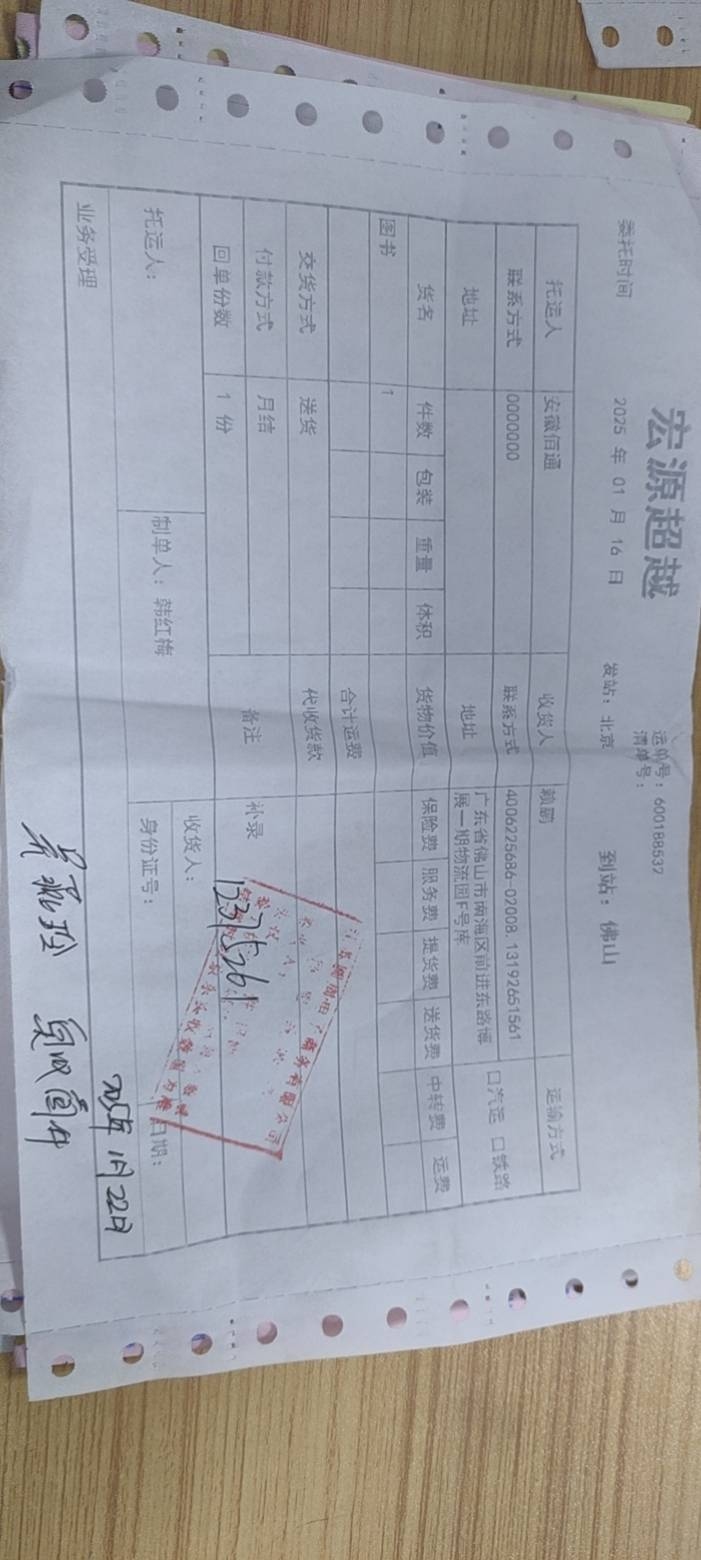 宏源超越
运单号：600188532
清单号：
委托时间 2025 年 01 月 16 日 发站：北京 到站：佛山
托运人 安徽佰通 收货人 赖鹏 运输方式
联系方式 0000000 联系方式 4006225686-02008,13192651561 口汽运 口铁路
地址 地址 广东省佛山市南海区前进东路博
展一期物流园F号库
货名 件数 包装 重量 体积 货物价值 保险费 服务费 提货费 送货费 中转费 运费
图书 1
合计运费
交货方式 送货 代收货款
付款方式 月结 备注 补录
回单份数 1 份
托运人： 制单人：韩红梅 收货人：
身份证号： 日期：
2025年1月22日
业务受理